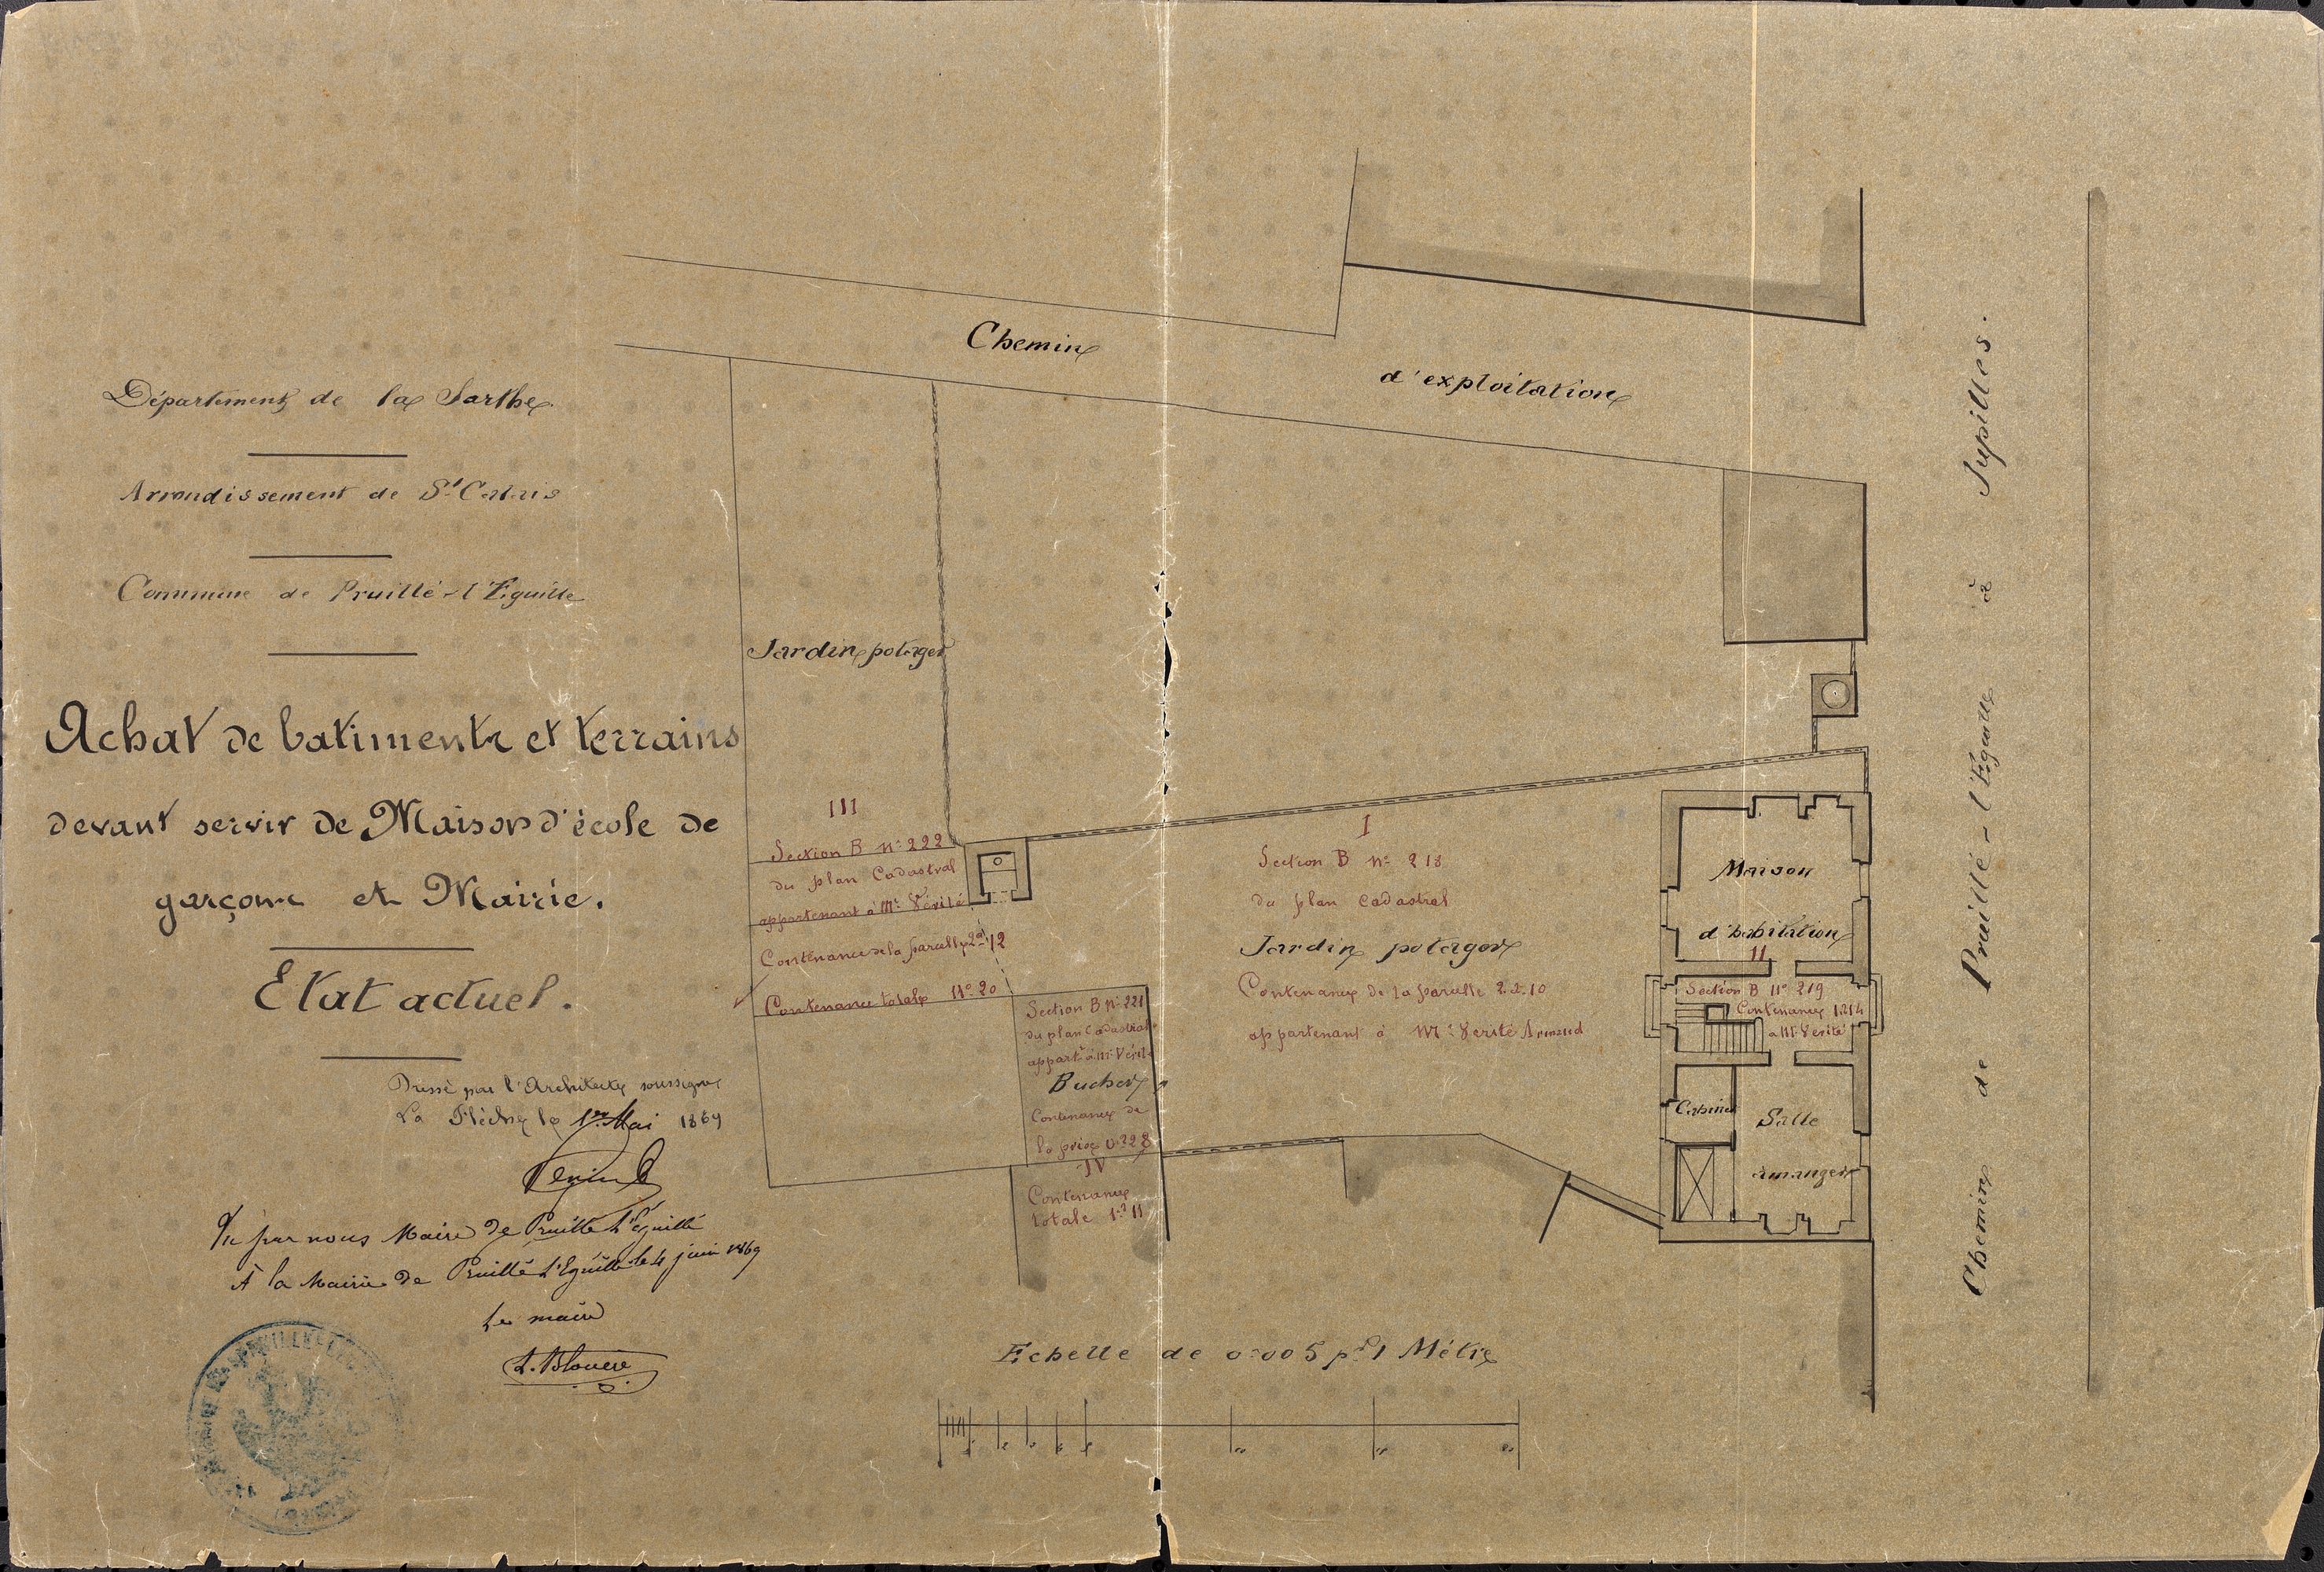 Département de la Sarthe
Arrondissement de St Calais
Commune de Pruillé-l'Eguillé
Achat de batiments et terrains
devant servir de Maison d'école de
garçons et Mairie.
Etat actuel.
Dressé par l'Architecte soussigné
La Flèche le 1er Mai 1869
Vu par nous Maire de Pruillé L'Eguillé
A la Mairie de Pruillé L'Eguillé le 4 juin 1869
Le maire
Chemin
d'exploitation
Jardin potager
III
Section B n° 222
du plan Cadastral
appartenant à Mr Vérité
Contenance de la parcelle 2a 12
Contenance totale 11a 20
Section B n° 221
du plan Cadastral
appart. à Mr Vérité
Bucher
Contenance de
la prise 0a 22 8
IV
Contenance
totale 1a 11
I
Section B n° 218
du plan Cadastral
Jardin potager
Contenance de la parcelle 2a 10
appartenant à Mr Vérité Armand
Maison
d'habitation
II
Section B n° 219
Contenance 1a 14
à Mr Vérité
Cabinet
Salle
à manger
Chemin de Pruillé-l'Eguillé à Jupilles.
Echelle de 0m005 pr 1 Mètre